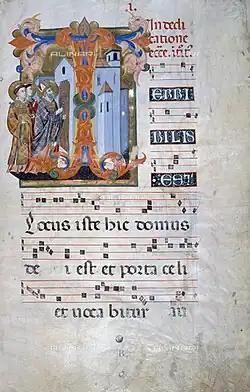 1.
In dedi
catione
ecce. is. is.
T
ERRI
BILIS
EST
Locus iste hic domus
de i est et porta celi
et uoca bitur
ALINARI
ALINARI
ALINARI